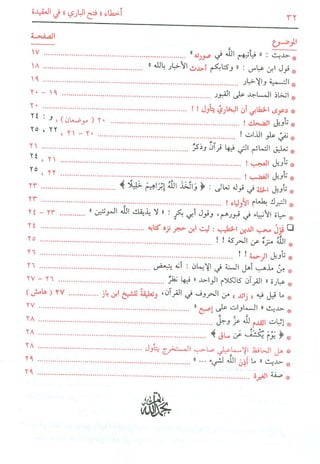 ٣٢ أخطاء « فتح الباري » في العقيدة
الموضوع الصفحة
* حديث : « فيأتيهم الله في صورته » ١٧
* قول ابن عباس : « وكتابكم أحدث الأخبار بالله » ١٨
* التسمية والإخبار ١٩
* اتخاذ المساجد على القبور ١٩ - ٢٠
* دعوى الخطابي أن البخاري يتأول ! ! ٢٠
* تأويل الضحك ! ٢٠ ( موضعان ) ، و : ٢٤
* نفي علو الذات ! ٢٠ - ٢١ ، ٢٢ ، ٢٥
* تعليق التمائم التي فيها قرآن وذكر ٢١
* تأويل العجب ! ٢١ ، ٢٤
* تأويل الغضب ! ٢٢ ، ٢٥
* تأويل الخلة في قوله تعالى : ﴿ وَاتَّخَذَ اللَّهُ إِبْرَاهِيمَ خَلِيلًا ﴾ ٢٣
* التبرك بطعام الأولياء ! ٢٣
* حياة الأنبياء في قبورهم ، وقول أبي بكر : « لا يذيقك الله الموتتين » ٢٣ - ٢٤
❏ قول محب الدين الخطيب : ليت ابن حجر نزه كتابه ٢٤
* الله منزه عن الحركة ! ! ٢٥
* تأويل الرحمة ! ٢٦
* من مذهب أهل السنة في الإيمان : أنه يتبعض ٢٦
* عبارة « القرآن كالكلام الواحد » فيها نظر ٢٦ - ٢٧
* ما قيل فيه « زائد » من الحروف في القرآن ، وتعليقة للشيخ ابن باز ٢٧ ( هامش )
* حديث « السماوات على إصبع » ٢٧
* إثبات القدم لله عز وجل ٢٨
* ﴿ يَوْمَ يُكْشَفُ عَن سَاقٍ ﴾ ٢٨
* هل الحافظ الإسماعيلي صاحب المستخرج يتأول ٢٨
* حديث « ما أذن الله لشيء ... » ٢٩
* صفة الغيرة ٢٩